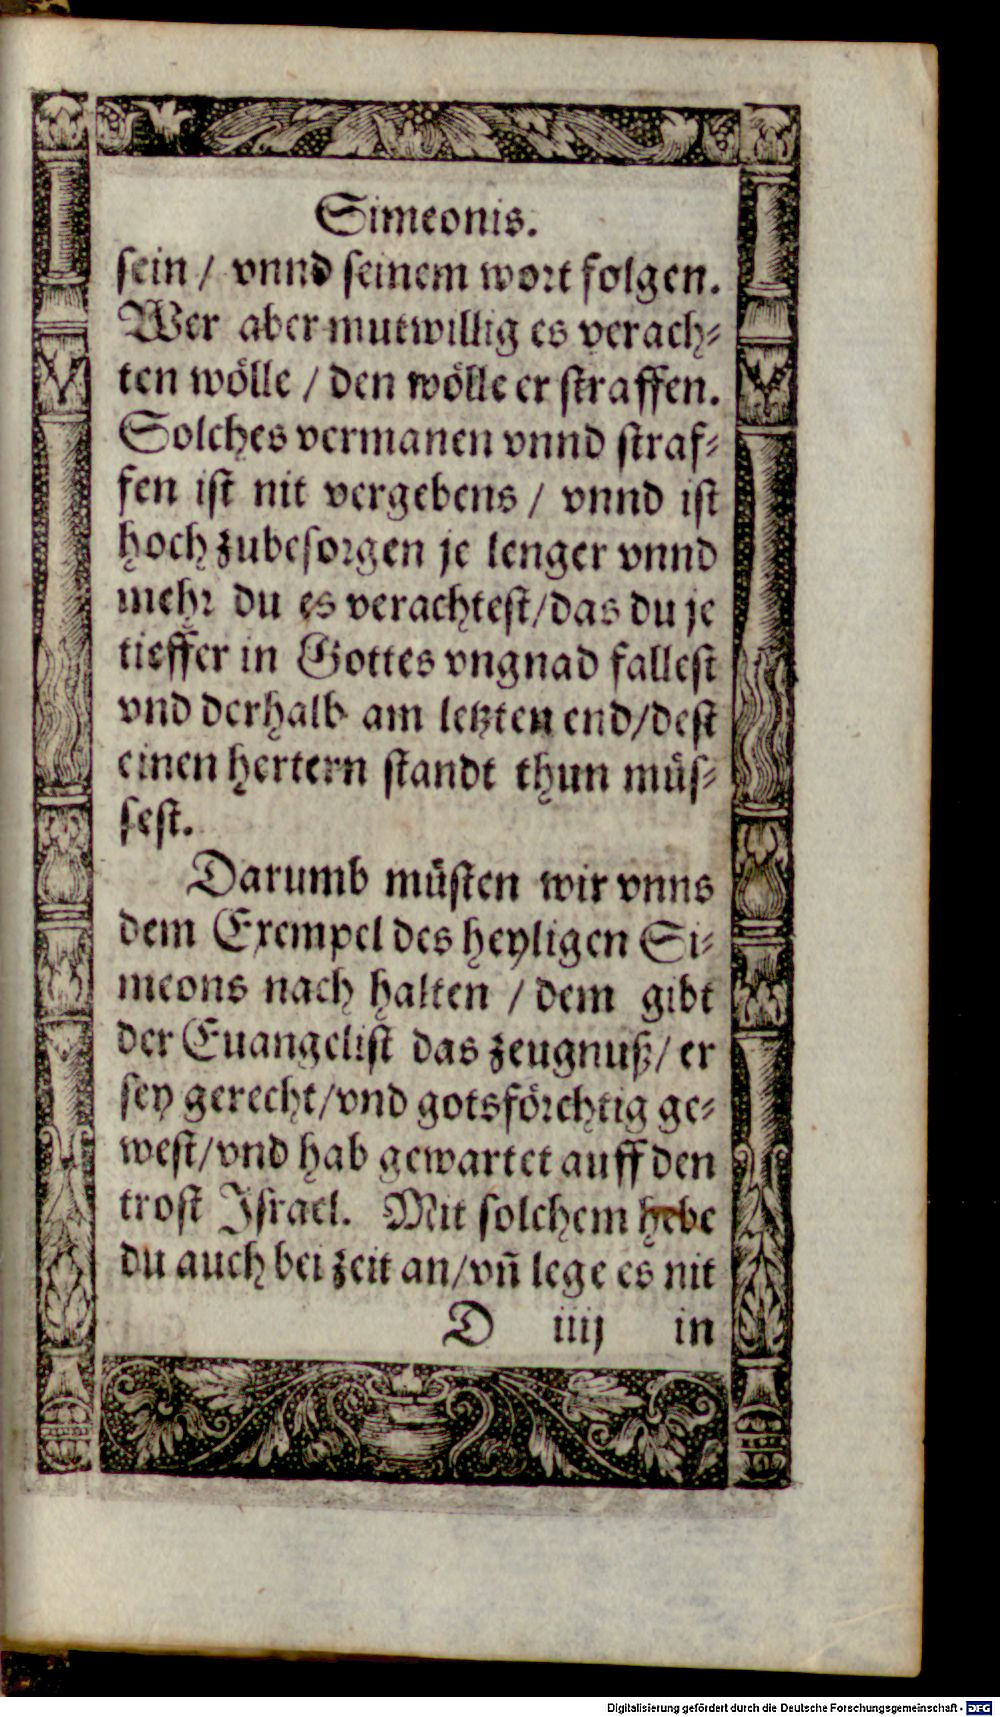 Simeonis.
sein / vnnd seinem wort folgen.
Wer aber mutwillig es verach⸗
ten wölle / den wölle er straffen.
Solches vermanen vnnd straf⸗
fen ist nit vergebens / vnnd ist
hoch zubesorgen je lenger vnnd
mehr du es verachtest/das du je
tieffer in Gottes vngnad fallest
vnd derhalb am letzten end/dest
einen hertern standt thun müs⸗
sest.
Darumb müsten wir vnns
dem Exempel des heyligen Si⸗
meons nach halten / dem gibt
der Euangelist das zeugnuß/ er
sey gerecht/vnd gotsförchtig ge⸗
west/vnd hab gewartet auff den
trost Israel. Mit solchem hebe
du auch bei zeit an/vn̄ lege es nit
D iiij in
Digitalisierung gefördert durch die Deutsche Forschungsgemeinschaft - DFG